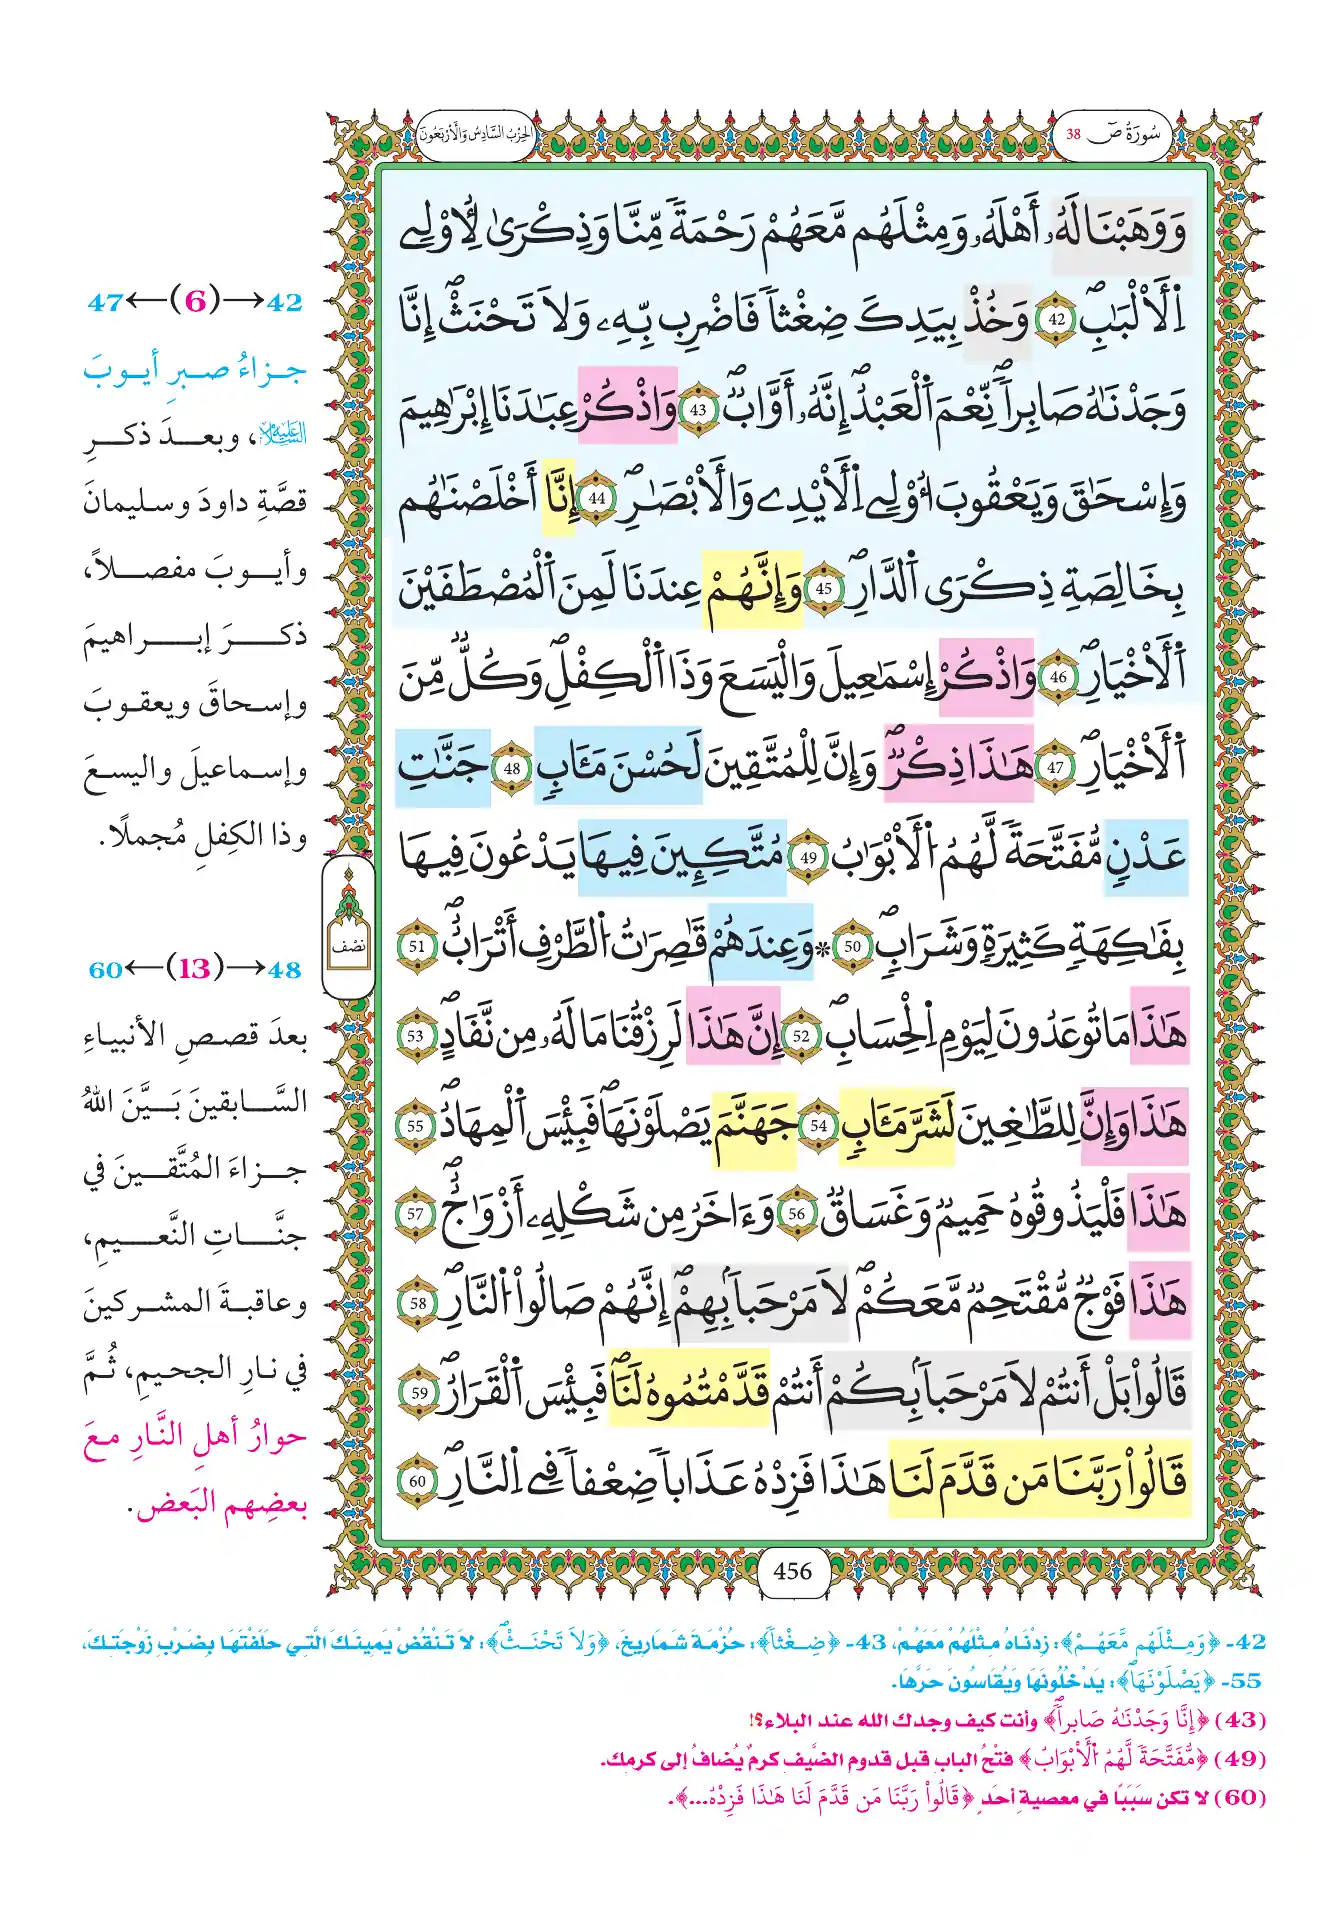 سُورَةُ صٓ 38
الحِزْبُ السَّادِسُ وَالأَرْبَعُونَ
وَوَهَبْنَا لَهُۥ أَهْلَهُۥ وَمِثْلَهُم مَّعَهُمْ رَحْمَةً مِّنَّا وَذِكْر۪ىٰ لِأُوْلِے
اِ۬لْأَلْبَٰبِۖ 42 وَخُذْ بِيَدِكَ ضِغْثاً فَاضْرِب بِّهِۦ وَلَا تَحْنَثْۖ إِنَّا
وَجَدْنَٰهُ صَابِراًۖ نِّعْمَ اَ۬لْعَبْدُۖ إِنَّهُۥ أَوَّابٌۖ 43 وَاذْكُرْ عِبَٰدَنَا إِبْرَٰهِيمَ
وَإِسْحَٰقَ وَيَعْقُوبَ أُوْلِے اِ۬لْأَيْدِے وَالْأَبْصٰ۪رِۖ 44 إِنَّا أَخْلَصْنَٰهُم
بِخَالِصَةٍ ذِكْرَى اَ۬لدّ۪ارِۖ 45 وَإِنَّهُمْ عِندَنَا لَمِنَ اَ۬لْمُصْطَفَيْنَ
اَ۬لْأَخْي۪ارِۖ 46 وَاذْكُرْ إِسْمَٰعِيلَ وَالْيَسَعَ وَذَا اَ۬لْكِفْلِۖ وَكُلٌّ مِّنَ
اَ۬لْأَخْي۪ارِۖ 47 هَٰذَا ذِكْرٌۖ وَإِنَّ لِلْمُتَّقِينَ لَحُسْنَ مَـَٔابٍ 48 جَنَّٰتِ
عَدْنٍ مُّفَتَّحَةً لَّهُمُ اُ۬لْأَبْوَٰبُ 49 مُتَّكِـِٕينَ فِيهَا يَدْعُونَ فِيهَا
بِفَٰكِهَةٍ كَثِيرَةٍ وَشَرَابٍۖ 50 * وَعِندَهُمْ قَٰصِرَٰتُ اُ۬لطَّرْفِ أَتْرَابٌۖ 51
هَٰذَا مَا تُوعَدُونَ لِيَوْمِ اِ۬لْحِسَابِۖ 52 إِنَّ هَٰذَا لَرِزْقُنَا مَا لَهُۥ مِن نَّفَادٍۖ 53
هَٰذَا وَإِنَّ لِلطَّٰغِينَ لَشَرَّ مَـَٔابٍ 54 جَهَنَّمَ يَصْلَوْنَهَاۖ فَبِئْسَ اَ۬لْمِهَادُۖ 55
هَٰذَا فَلْيَذُوقُوهُ حَمِيمٌ وَغَسَاقٌ 56 وَءَاخَرُ مِن شَكْلِهِۦ أَزْوَٰجٌۖ 57
هَٰذَا فَوْجٌ مُّقْتَحِمٌ مَّعَكُمْۖ لَا مَرْحَباَۢ بِهِمْۖ إِنَّهُمْ صَالُواْ اُ۬لنّ۪ارِۖ 58
قَالُواْ بَلْ أَنتُمْ لَا مَرْحَباَۢ بِكُمْ أَنتُمْ قَدَّمْتُمُوهُ لَنَاۖ فَبِئْسَ اَ۬لْقَرَارُۖ 59
قَالُواْ رَبَّنَا مَن قَدَّمَ لَنَا هَٰذَا فَزِدْهُ عَذَاباً ضِعْفاً فِے اِ۬لنّ۪ارِۖ 60
نصف
456
47←(6)→42
جزاءُ صبرِ أيوبَ
عليه السلام، وبعدَ ذكرِ
قصَّةِ داودَ وسليمانَ
وأيوبَ مفصلاً،
ذكرَ إبراهيمَ
وإسحاقَ ويعقوبَ
وإسماعيلَ واليسعَ
وذا الكِفلِ مُجملًا.
60←(13)→48
بعدَ قصصِ الأنبياءِ
السَّابقينَ بَيَّنَ اللهُ
جزاءَ المُتَّقينَ في
جنَّاتِ النَّعيمِ،
وعاقبةَ المشركينَ
في نارِ الجحيمِ، ثُمَّ
حوارُ أهلِ النَّارِ معَ
بعضِهم البَعض.
42- ﴿وَمِثْلَهُم مَّعَهُمْ﴾: زِدْنَاهُ مِثْلَهُمْ مَعَهُمْ، 43- ﴿ضِغْثاً﴾: حُزْمَةَ شَمَارِيخَ، ﴿وَلَا تَحْنَثْۖ﴾: لَا تَنْقُضْ يَمِينَكَ الَّتِي حَلَفْتَهَا بِضَرْبِ زَوْجَتِكَ،
55- ﴿يَصْلَوْنَهَاۖ﴾: يَدْخُلُونَهَا وَيُقَاسُونَ حَرَّهَا.
(43) ﴿إِنَّا وَجَدْنَٰهُ صَابِراًۖ﴾ وأنت كيف وجدك الله عند البلاء؟!
(49) ﴿مُّفَتَّحَةً لَّهُمُ اُ۬لْأَبْوَٰبُ﴾ فتْحُ الباب قبل قدوم الضَّيفِ كرمٌ يُضافُ إلى كرمك.
(60) لا تكن سَبَبًا في معصيةِ أحَدٍ ﴿قَالُواْ رَبَّنَا مَن قَدَّمَ لَنَا هَٰذَا فَزِدْهُ...﴾.